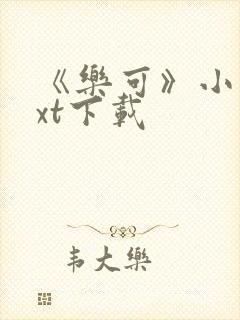 《樂可》小
xt下載
韦大樂